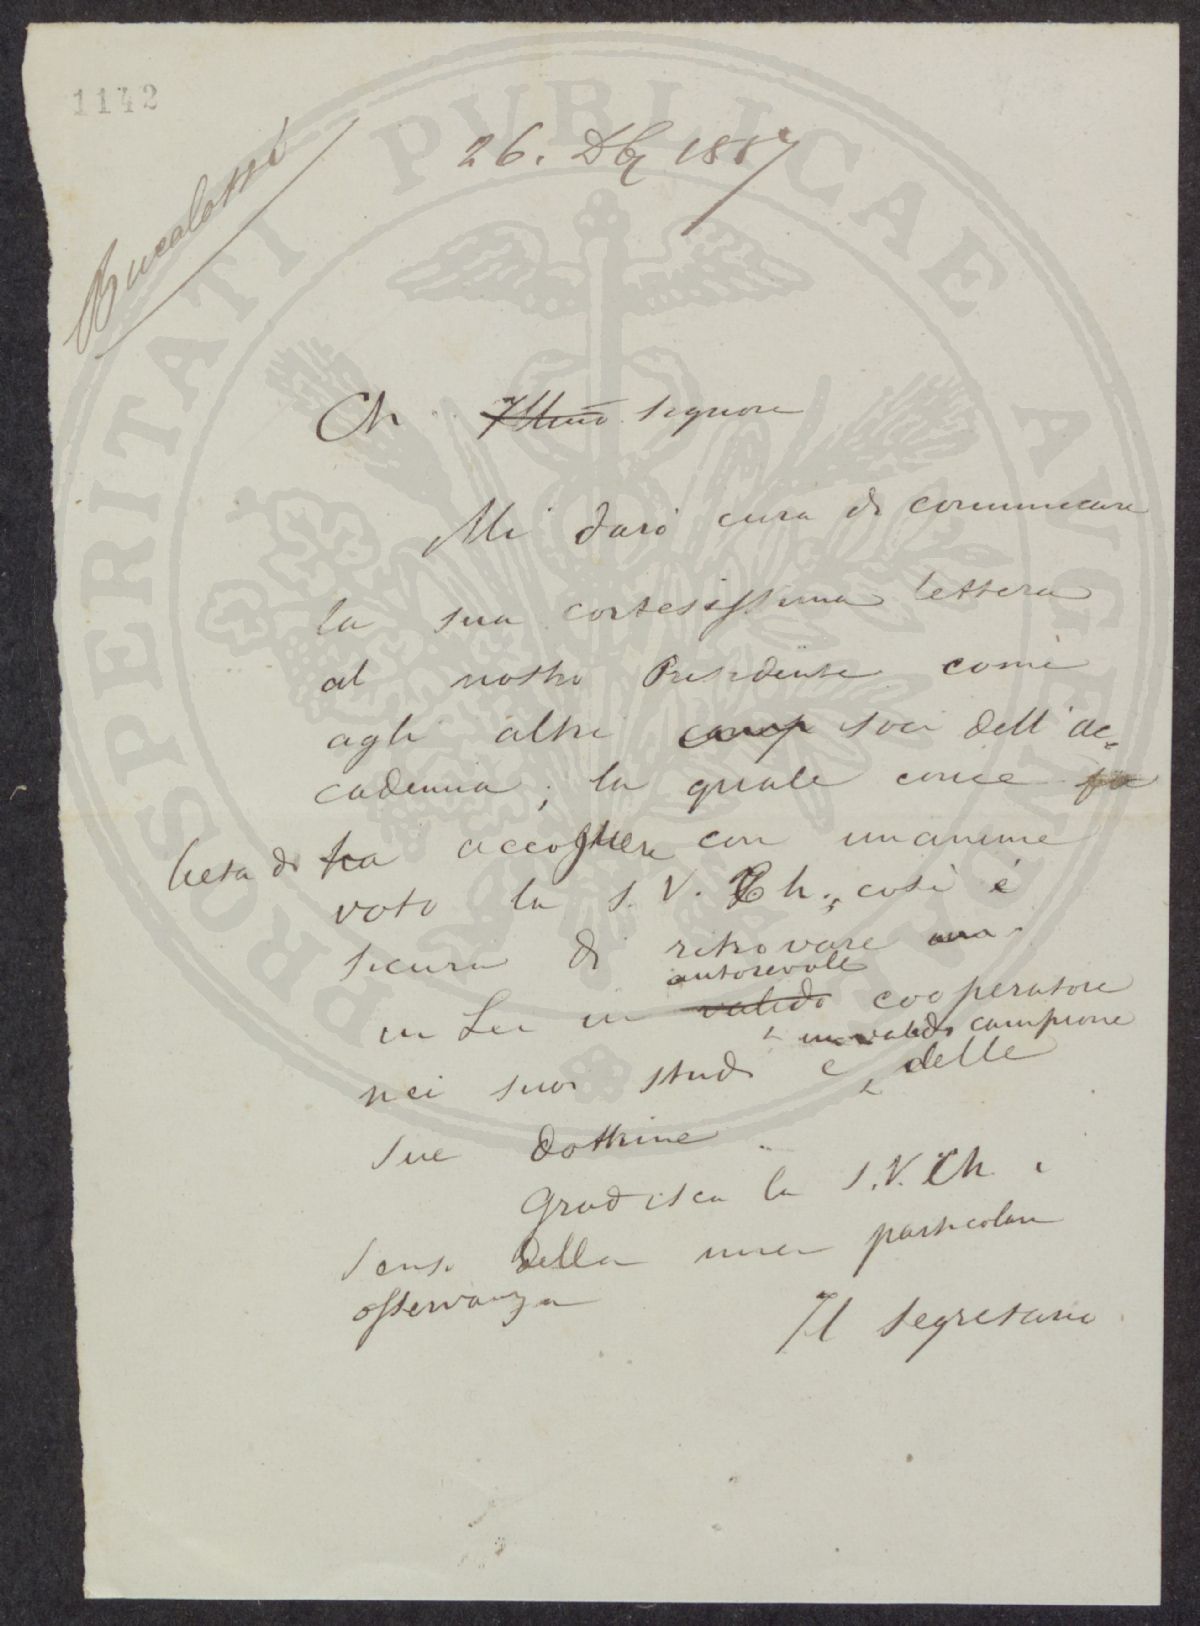 1142
Bucalossi
26. Dbr 1887
Ch Illmo Signore
Mi darò cura di comunicare
la sua cortesissima lettera
al nostro Presidente come
agli altri comp soci dell'ac=
cademia; la quale come fu
lieta di accogliere con unanime
voto la S. V. Ch.; così è
sicura di ritrovare
in Lei un valido autorevole cooperatore
nei suoi studi e un valido campione delle
sue dottrine.
Gradisca la S. V. Ch. i
sensi della mia particolare
osservanza
Il Segretario
PROSPERITATI PVBLICAE AVGENDAE